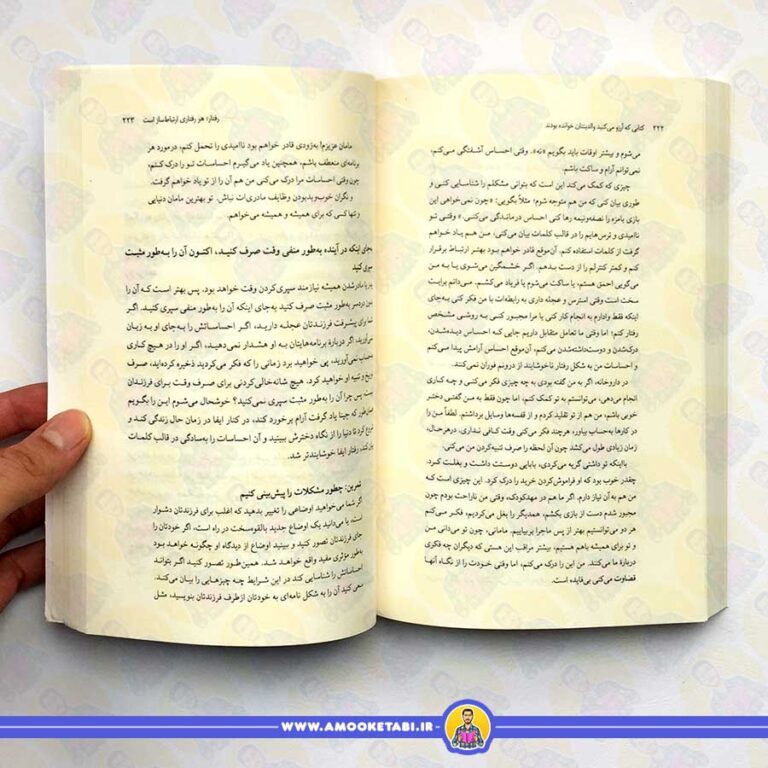 ۲۲۲ کتابی که آرزو می‌کنید والدینتان خوانده بودند
می‌شوم و بیشتر اوقات باید بگویم «نه». وقتی احساس آشفتگی می‌کنم،
نمی‌توانم آرام و ساکت باشم.
چیزی که کمک می‌کند این است که بتوانی مشکلم را شناسایی کنی و
طوری بیان کنی که من هم متوجه شوم؛ مثلاً بگویی: «چون نمی‌خواهی این
بازی بامزه را نصفه‌ونیمه رها کنی احساس درماندگی می‌کنی.» وقتی تو
ناامیدی و ترس‌هایم را در قالب کلمات بیان می‌کنی، من هم یاد خواهم
گرفت از کلمات استفاده کنم. آن‌موقع قادر خواهم بود بهتر ارتباط برقرار
کنم و کمتر کنترلم را از دست بدهم. اگر خشمگین می‌شوی یا به من
می‌گویی احمق هستم، یا ساکت می‌شوم یا فریاد می‌کشم. می‌دانم برایت
سخت است وقتی استرس و عجله داری به رابطه‌ات با من فکر کنی به‌جای
اینکه فقط وادارم به انجام کار کنی یا مرا مجبور کنی به روشی مشخص
رفتار کنم؛ اما وقتی ما تعامل متقابل داریم جایی که احساس دیده‌شدن،
درک‌شدن و دوست‌داشته‌شدن می‌کنم، آن‌موقع احساس آرامش پیدا می‌کنم
و احساسات من به شکل رفتار ناخوشایند از درونم فوران نمی‌کنند.
در داروخانه، اگر به من گفته بودی به چه چیزی فکر می‌کنی و چه کاری
انجام می‌دهی، می‌توانستم به تو کمک کنم، اما چون فقط به من گفتی دختر
خوبی باشم، من هم از تو تقلید کردم و از قفسه‌ها وسایل برداشتم. لطفاً من را
در کارها به‌حساب بیاور، هرچند فکر می‌کنی وقت کافی نداری، درهرحال،
زمان زیادی طول می‌کشد چون آن لحظه را صرف تنبیه‌کردن من می‌کنی.
بااینکه تو داشتی گریه می‌کردی، بابایی دوستت داشت و بغلت کرد.
چقدر خوب بود که او فراموش‌کردن خرید را درک کرد. این چیزی است که
من هم به آن نیاز دارم. اگر ما هم در مهدکودک، وقتی من ناراحت بودم چون
مجبور شدم دست از بازی بکشم، همدیگر را بغل می‌کردیم، فکر می‌کنم
هر دو می‌توانستیم بهتر از پس ماجرا بربیاییم. مامانی، چون تو می‌دانی من
و تو برای همیشه باهم هستیم، بیشتر مراقب این هستی که دیگران چه فکری
دربارهٔ ما می‌کنند. من این را درک می‌کنم، اما وقتی خودت را از نگاه آنها
قضاوت می‌کنی بی‌فایده است.
رفتار: هر رفتاری ارتباط‌ساز است ۲۲۳
مامان عزیزم! به‌زودی قادر خواهم بود ناامیدی را تحمل کنم، درمورد هر
برنامه‌ای منعطف باشم، همچنین یاد می‌گیرم احساسات تو را درک کنم،
چون وقتی احساسات مرا درک می‌کنی من هم آن را از تو یاد خواهم گرفت.
نگران خوب‌وبدبودن وظایف مادری‌ات نباش. تو بهترین مامان دنیایی
و تنها کسی که برای همیشه و همیشه می‌خواهم.
به‌جای اینکه در آینده به‌طور منفی وقت صرف کنید، اکنون آن را به‌طور مثبت
سپری کنید
مادرشدن همیشه نیازمند سپری‌کردن وقت خواهد بود. پس بهتر است که آن را
دردسر به‌طور مثبت صرف کنید به‌جای اینکه آن را به‌طور منفی سپری کنید. اگر
برای پیشرفت فرزندتان عجله دارید، اگر احساساتش را به‌جای او به زبان
نمی‌آورید، اگر دربارهٔ برنامه‌هایتان به او هشدار نمی‌دهید، اگر او را در هیچ کاری
به‌حساب نمی‌آورید، پی خواهید برد زمانی را که فکر می‌کردید ذخیره کرده‌اید، صرف
و تنبیه او خواهید کرد. هیچ شانه‌خالی‌کردنی برای صرف وقت برای فرزندان
پس چرا آن را به‌طور مثبت سپری نمی‌کنید؟ خوشحال می‌شوم این را بگویم
همان‌طور که جینا یاد گرفت آرام برخورد کند، در کنار ایفا در زمان حال زندگی کند و
شروع کرد تا دنیا را از نگاه دخترش ببیند و آن احساسات را به‌سادگی در قالب کلمات
بیان کند، رفتار ایفا خوشایندتر شد.
تمرین: چطور مشکلات را پیش‌بینی کنیم
اگر شما می‌خواهید اوضاعی را تغییر بدهید که اغلب برای فرزندتان دشوار
است، یا می‌دانید یک اوضاع جدید بالقوه‌سخت در راه است، اگر خودتان را
جای فرزندتان تصور کنید و ببینید اوضاع از دیدگاه او چگونه خواهد بود
به‌طور مؤثری مفید واقع خواهد شد. همین‌طور تصور کنید اگر بتواند
احساساتش را شناسایی کند در این شرایط چه چیزهایی را بیان می‌کند.
سعی کنید آن را به شکل نامه‌ای به خودتان ازطرف فرزندتان بنویسید، مثل
WWW.AMOOKETABI.IR